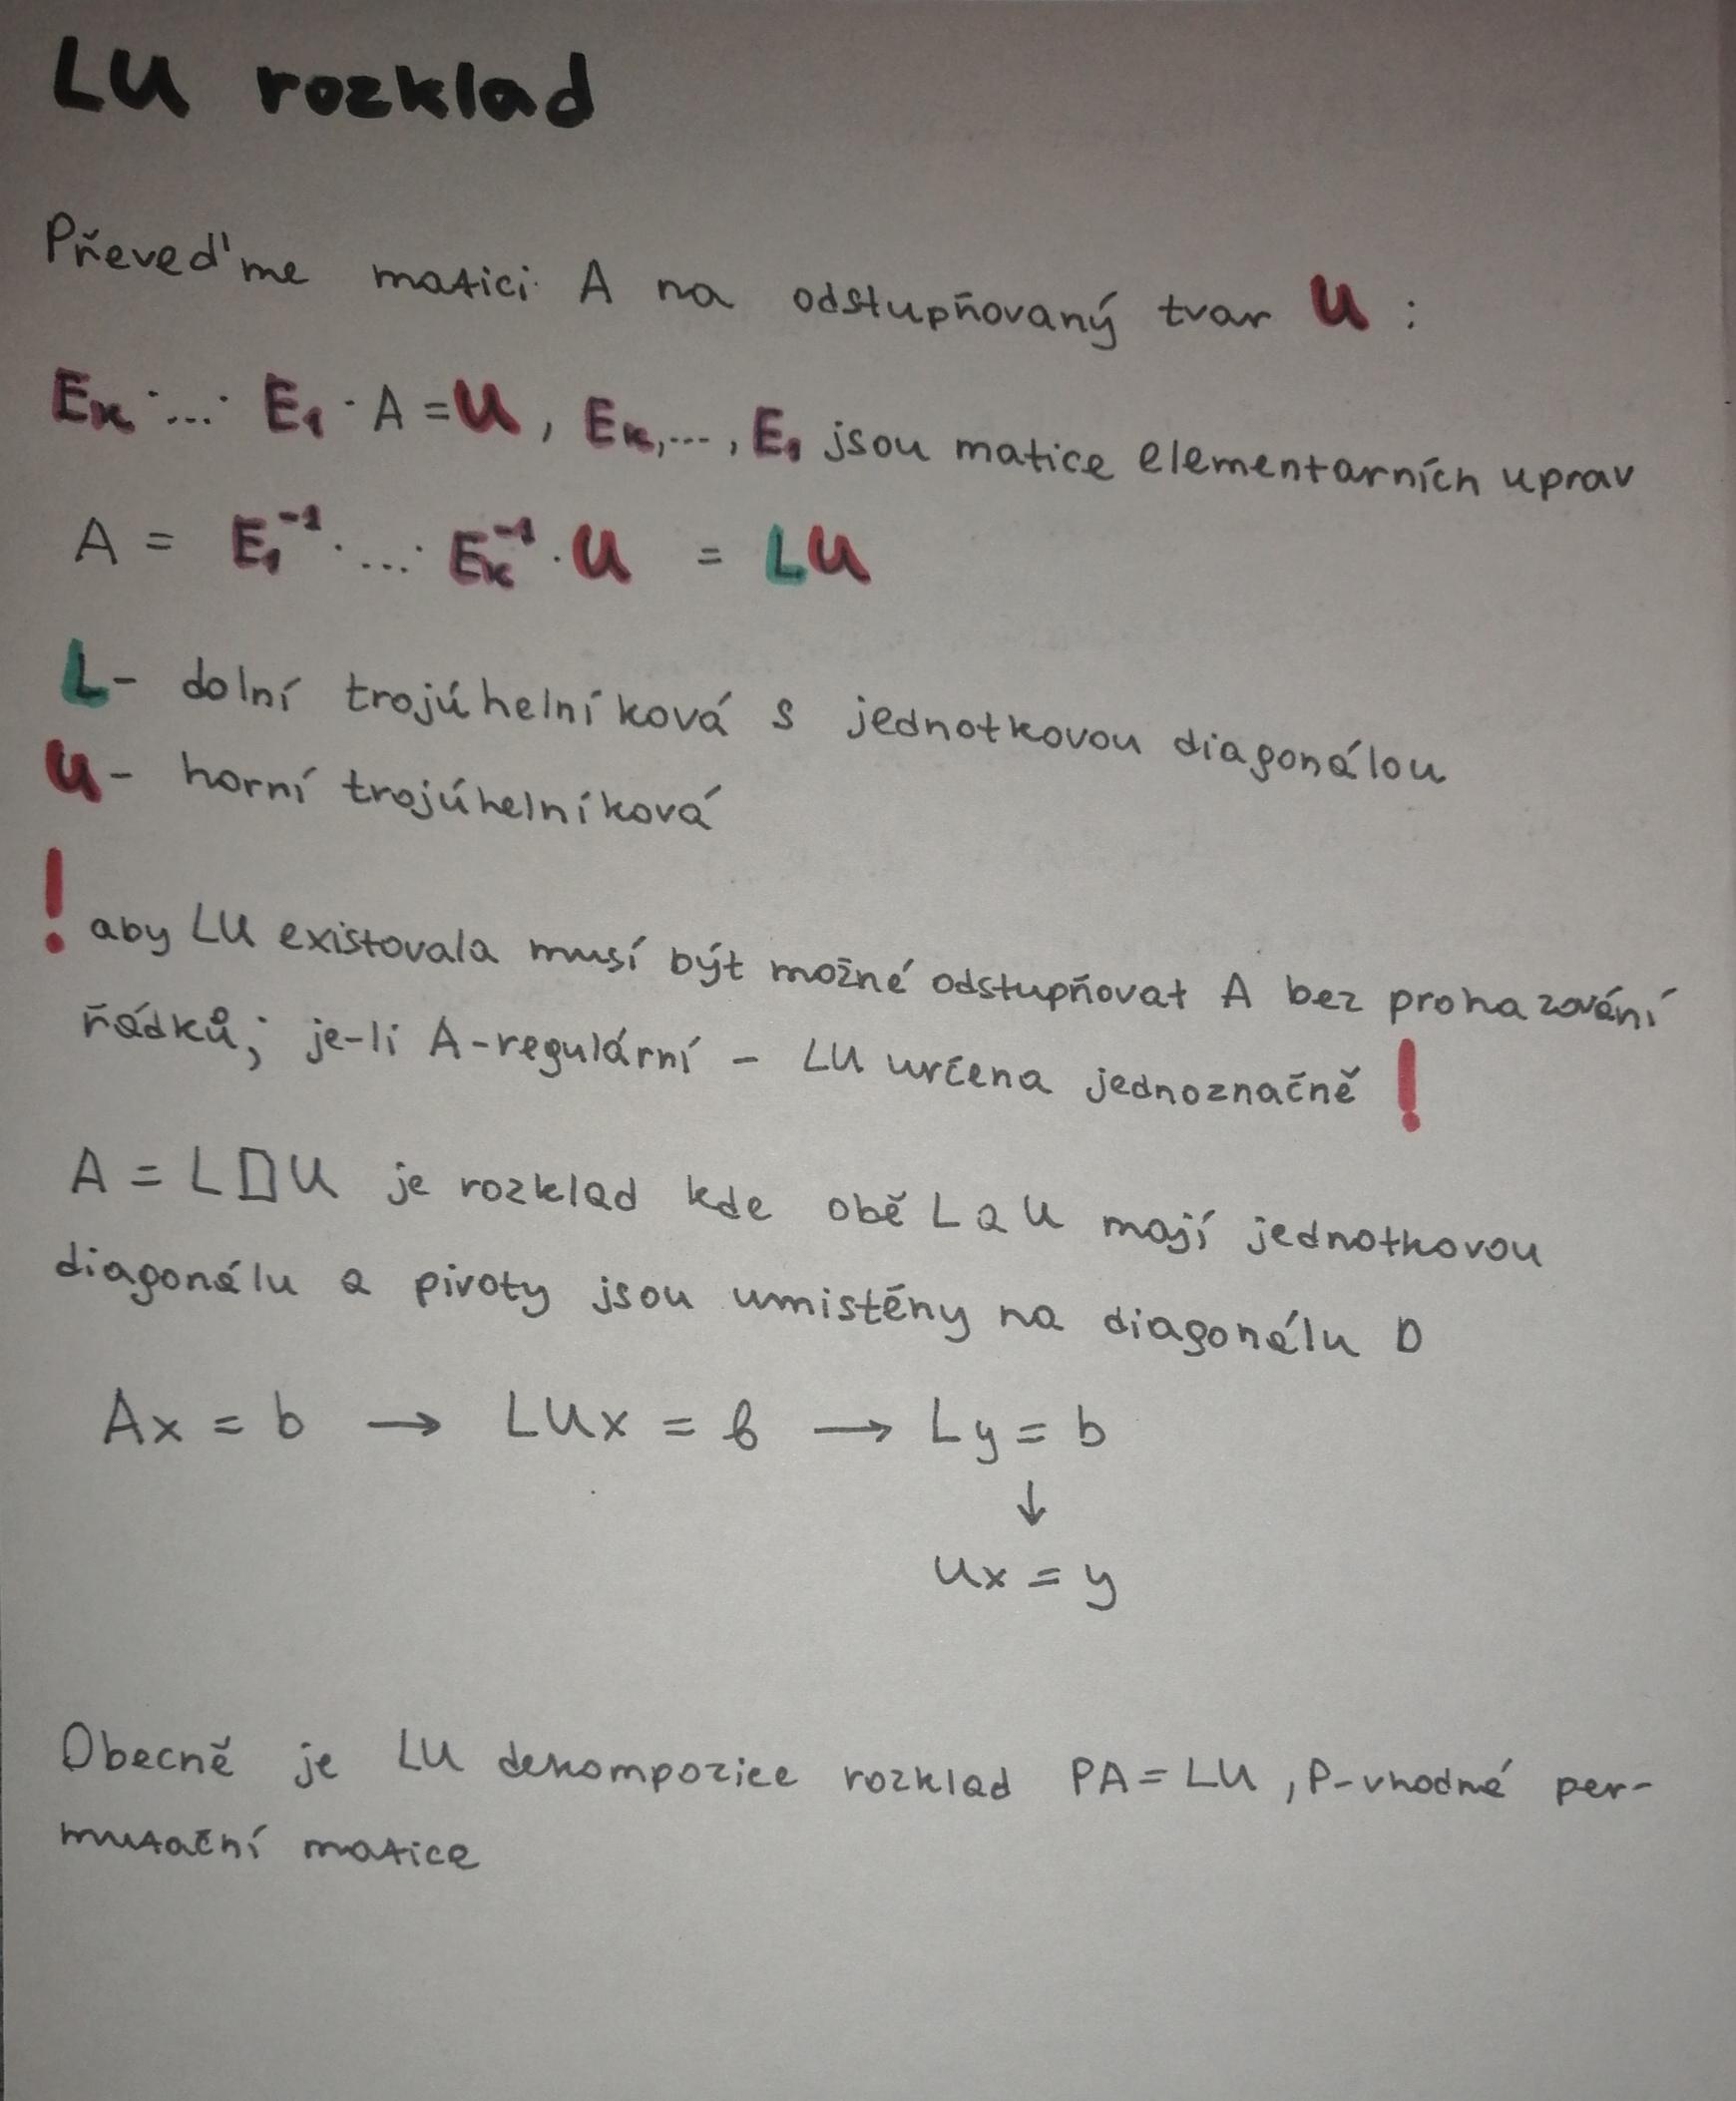 LU rozklad
Převeďme matici A na odstupňovaný tvar U :
Eₖ · ... · E₁ · A = U , Eₖ, ... , E₁ jsou matice elementarních uprav
A = E₁⁻¹ · ... · Eₖ⁻¹ · U = LU
L - dolní trojúhelníková s jednotkovou diagonálou
U - horní trojúhelníková
! aby LU existovala musí být možné odstupňovat A bez prohazování
řádků; je-li A-regulární - LU určena jednoznačně !
A = LDU je rozklad kde obě L a U mají jednotkovou
diagonálu a pivoty jsou umistěny na diagonálu D
Ax = b → LUx = b → Ly = b
↓
Ux = y
Obecně je LU dekompozice rozklad PA = LU , P-vhodné per-
mutační matice